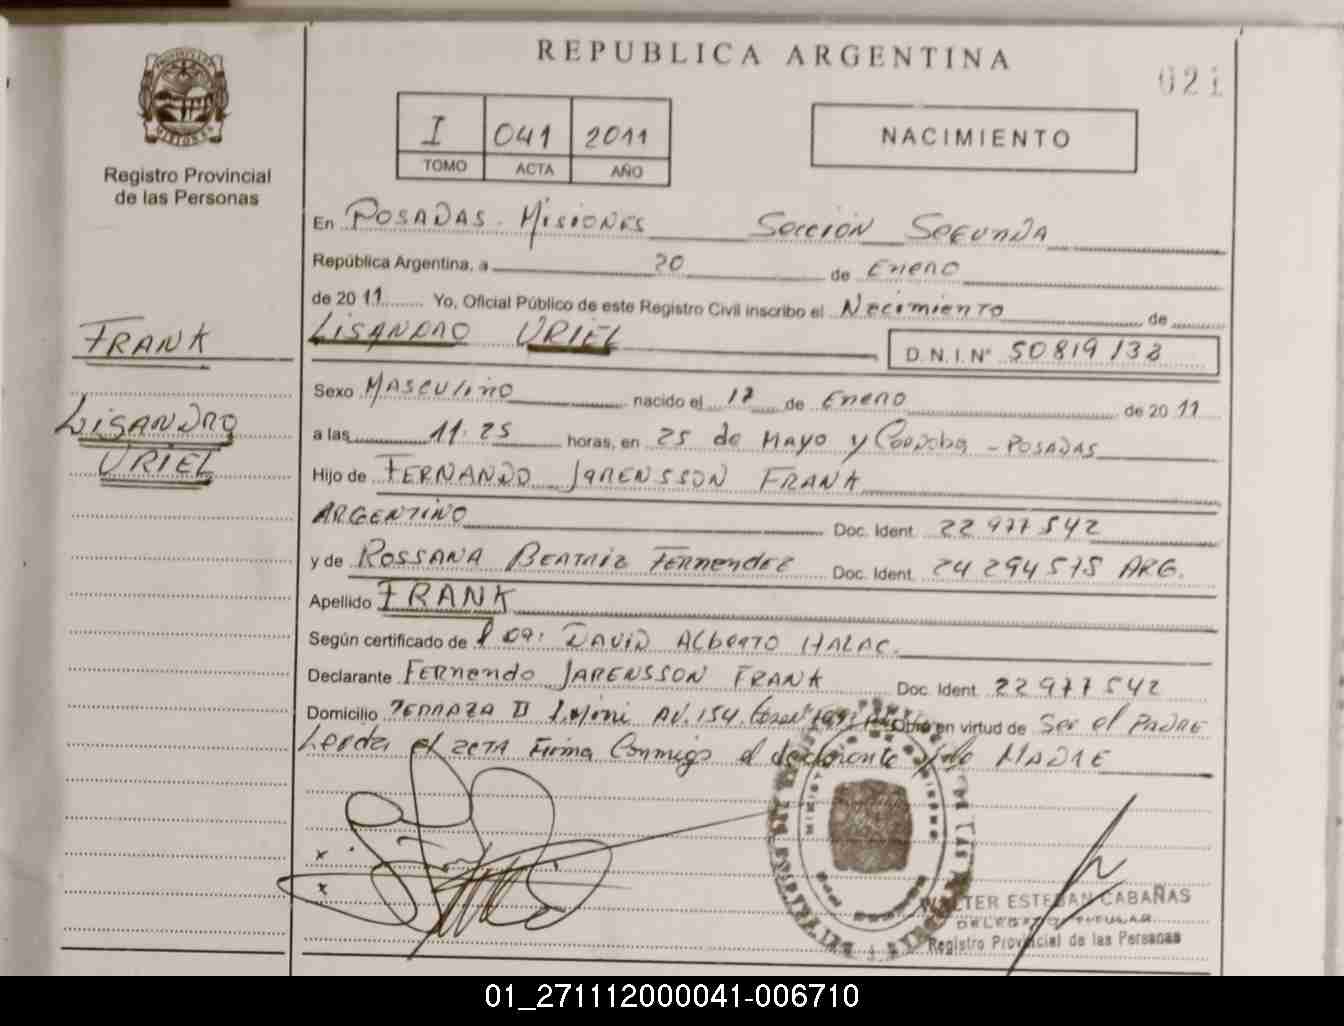 REPUBLICA ARGENTINA
021
MISIONES
Registro Provincial
de las Personas
I 041 2011
TOMO ACTA AÑO
NACIMIENTO
En POSADAS - MISIONES Sección SEGUNDA
República Argentina, a 20 de Enero
de 2011 Yo, Oficial Público de este Registro Civil inscribo el Nacimiento de
LISANDRO URIEL D. N. I. Nº 50819138
FRANK
LISANDRO
URIEL
Sexo MASCULINO nacido el de Enero de 2011
a las 11:25 horas, en 25 de MAYO y Cordoba - POSADAS
Hijo de FERNANDO JARENSSON FRANK
ARGENTINO Doc. Ident. 22977542
y de ROSSANA BEATRIZ FERNANDEZ Doc. Ident. 24294575 ARG.
Apellido FRANK
Según certificado de DAVID ALBERTO HALAC.
Declarante Fernando JARENSSON FRANK Doc. Ident. 22977542
Domicilio TERRAZA II AV. 154 Obra en virtud de Ser el PADRE
el ACTA Firma Conmigo el declarante MADRE
WALTER ESTEBAN CABAÑAS
DELEGADO TITULAR
Registro Provincial de las Personas
01_271112000041-006710